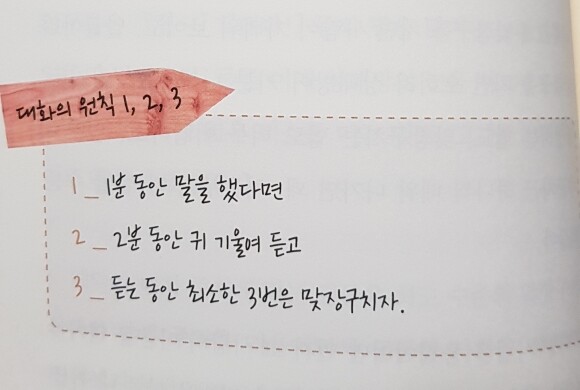 대화의 원칙 1, 2, 3
1_ 1분 동안 말을 했다면
2_ 2분 동안 귀 기울여 듣고
3_ 듣는 동안 최소한 3번은 맞장구치자.